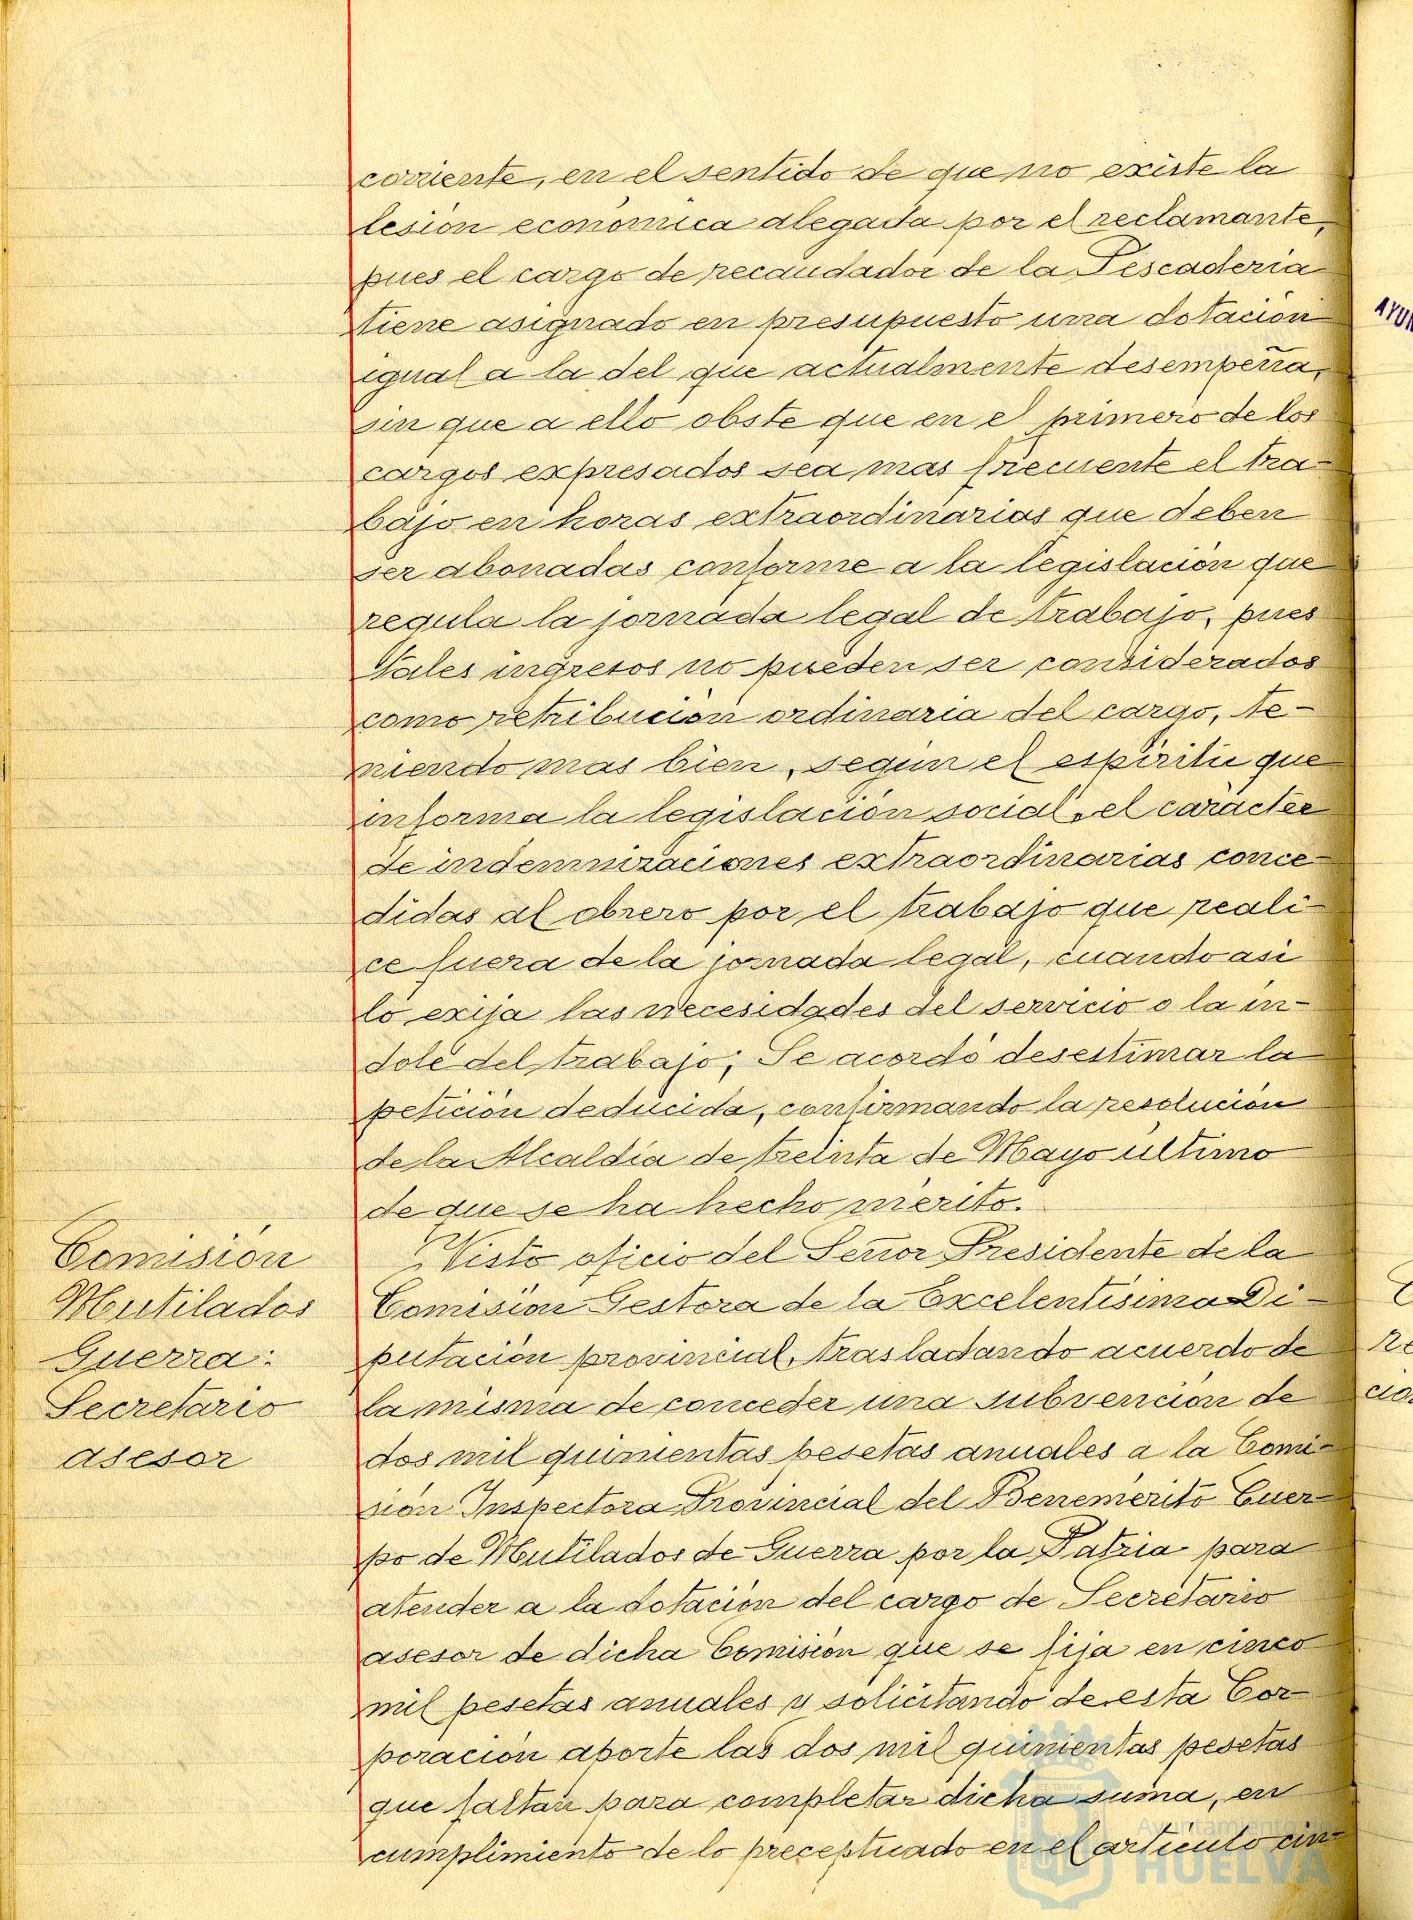 corriente, en el sentido de que no existe la
lesión económica alegada por el reclamante,
pues el cargo de recaudador de la Pescaderia
tiene asignado en presupuesto una dotación
igual a la del que actualmente desempeña,
sin que a ello obste que en el primero de los
cargos expresados sea mas frecuente el tra-
bajo en horas extraordinarias que deben
ser abonadas conforme a la legislación que
regula la jornada legal de trabajo, pues
tales ingresos no pueden ser considerados
como retribución ordinaria del cargo, te-
niendo mas bien, según el espiritu que
informa la legislación social, el carácter
de indemnizaciones extraordinarias conce-
didas al obrero por el trabajo que reali-
ce fuera de la jornada legal, cuando asi
lo exija las necesidades del servicio o la in-
dole del trabajo; Se acordó desestimar la
petición deducida, confirmando la resolución
de la Alcaldía de treinta de Mayo último
de que se ha hecho mérito.
Comisión
Mutilados
Guerra:
Secretario
asesor
Visto oficio del Señor Presidente de la
Comisión Gestora de la Excelentísima Di-
putación provincial, trasladando acuerdo de
la misma de conceder una subvención de
dos mil quinientas pesetas anuales a la Comi-
sión Inspectora Provincial del Benemérito Cuer-
po de Mutilados de Guerra por la Patria para
atender a la dotación del cargo de Secretario
asesor de dicha Comisión que se fija en cinco
mil pesetas anuales y solicitando de esta Cor-
poración aporte las dos mil quinientas pesetas
que faltan para completar dicha suma, en
cumplimiento de lo preceptuado en el articulo cin-
AYUN
Ayuntamiento
HUELVA